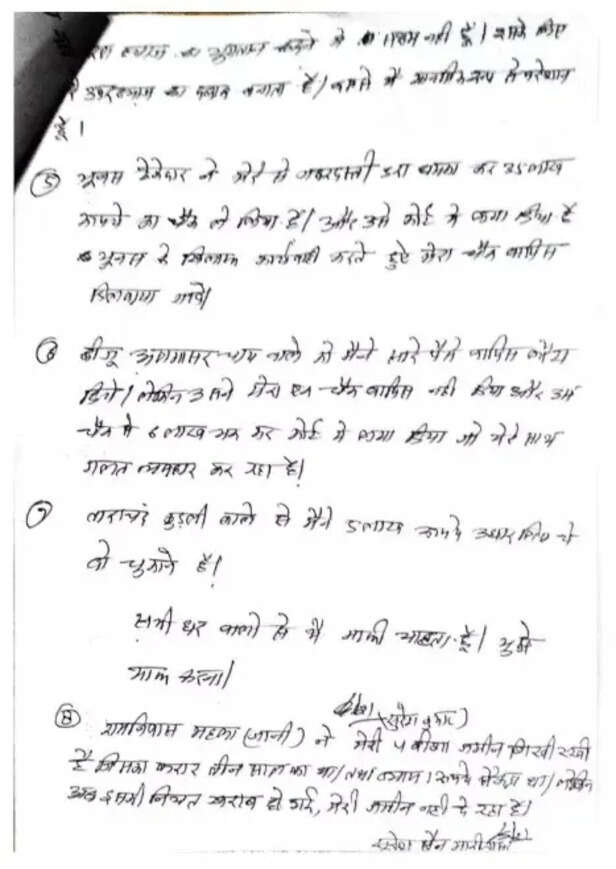 का भुगतान करने में सक्षम नहीं हूँ। इसके लिए
का दबाव बनाता है। मैं मानसिक रूप से परेशान
हूँ।
⑤ ठेकेदार ने मेरे से जबरदस्ती डरा धमका कर 35 लाख
रूपये का चैक ले लिया है। और उसे कोर्ट में लगा दिया है
के खिलाफ कार्यवाही करते हुऐ मेरा चैक वापिस
दिलवाया जावे।
⑥ वाले को मैंने सारे पैसे वापिस लौटा
दिये। लेकिन उसने मेरा एक चैक वापिस नहीं दिया और उस
चैक में 6 लाख भर कर कोर्ट में लगा दिया जो मेरे साथ
गलत व्यवहार कर रहा है।
⑦ ताराचंद कुड़ली वाले से मैंने 5 लाख रूपये उधार लिए थे
वो चुकाने हैं।
सभी घर वालो से मैं माफी चाहता हूँ। मुझे
माफ करना।
(सुरेश कुमार)
⑧ रामनिवास महला (जानी) ने मेरी 4 बीघा जमीन गिरवी रखी
है जिसका करार तीन साल का था। तथा ब्याज 1 रूपये सैकड़ा था। लेकिन
अब इसकी नियत खराब हो गई, मेरी जमीन नही दे रहा है।